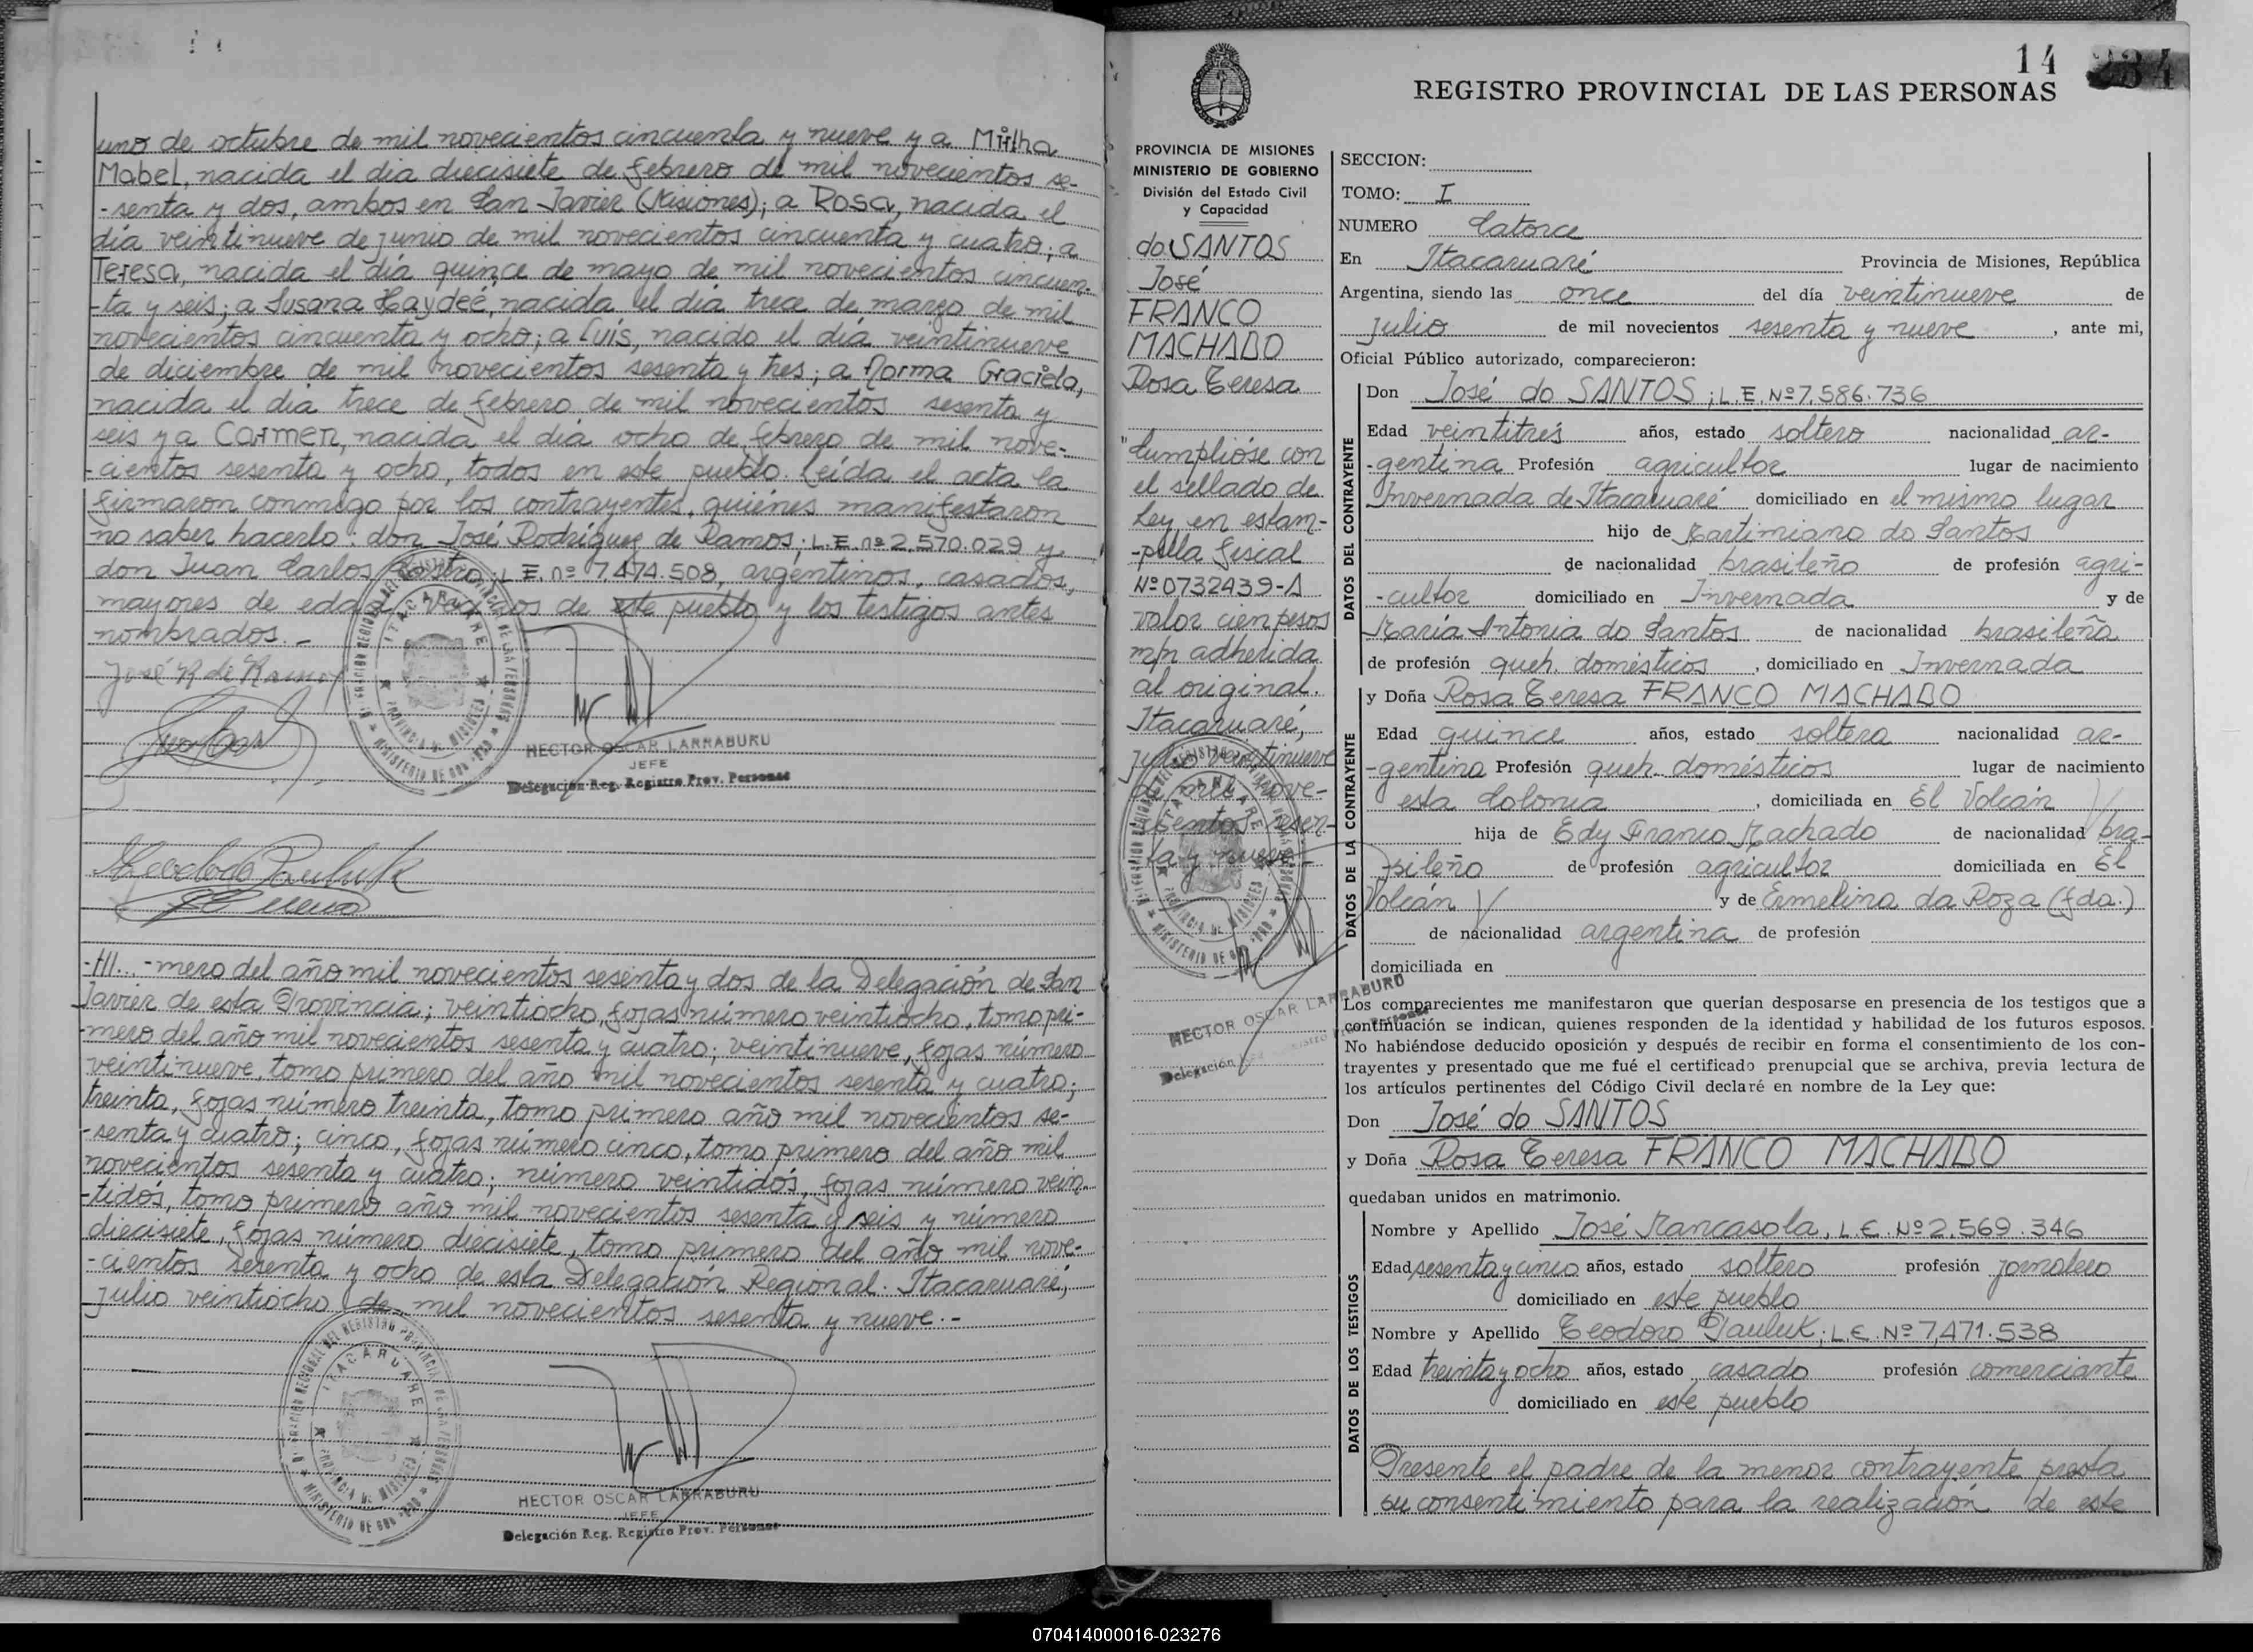 uno de octubre de mil novecientos cincuenta y nueve y a Mirtha
Mabel, nacida el día diecisiete de febrero de mil novecientos se-
-senta y dos, ambos en San Javier (Misiones); a Rosa, nacida el
día veintinueve de junio de mil novecientos cincuenta y cuatro; a
Teresa, nacida el día quince de mayo de mil novecientos cincuen-
-ta y seis; a Susana Haydeé, nacida el día trece de marzo de mil
novecientos cincuenta y ocho; a Luis, nacido el día veintinueve
de diciembre de mil novecientos sesenta y tres; a Norma Graciela,
nacida el día trece de febrero de mil novecientos sesenta y
seis y a Carmen, nacida el día ocho de febrero de mil nove-
-cientos sesenta y ocho, todos en este pueblo. Leída el acta la
firmaron conmigo por los contrayentes, quiénes manifestaron
no saber hacerlo: don José Rodríguez de Ramos; L.E. nº 2.570.029 y
don Juan Carlos L.E. nº 7.474.508, argentinos, casados,
mayores de edad, vecinos de este pueblo y los testigos antes
nombrados.-
José R de Ramos
HECTOR OSCAR LARRABURU
JEFE
Delegación Reg. Registro Prov. Personas
Teodoro Pauluk
-///... -mero del año mil novecientos sesenta y dos de la Delegación de San
Javier de esta Provincia; veintiocho, fojas número veintiocho, tomo pri-
-mero del año mil novecientos sesenta y cuatro; veintinueve, fojas número
veintinueve, tomo primero del año mil novecientos sesenta y cuatro;
treinta, fojas número treinta, tomo primero año mil novecientos se-
-senta y cuatro; cinco, fojas número cinco, tomo primero del año mil
novecientos sesenta y cuatro; número veintidós, fojas número vein-
-tidós, tomo primero año mil novecientos sesenta y seis y número
diecisiete, fojas número diecisiete, tomo primero del año mil nove-
-cientos sesenta y ocho de esta Delegación Regional. Itacaruaré,
julio veintiocho de mil novecientos sesenta y nueve.-
ITACARUARE
HECTOR OSCAR LARRABURU
JEFE
Delegación Reg. Registro Prov. Personas
14 234
REGISTRO PROVINCIAL DE LAS PERSONAS
PROVINCIA DE MISIONES
MINISTERIO DE GOBIERNO
División del Estado Civil
y Capacidad
do SANTOS
José
FRANCO
MACHADO
Rosa Teresa
"Cumplióse con
el sellado de
Ley, en estam-
-pilla fiscal
Nº 0732439-A
valor cien pesos
m/n adherida
al original.
Itacaruaré,
julio veintinueve
de mil nove-
cientos sesen-
ta y nueve.-
HECTOR OSCAR LARRABURU
Delegación
SECCION:
TOMO: I
NUMERO Catorce
En Itacaruaré Provincia de Misiones, República
Argentina, siendo las once del día veintinueve de
julio de mil novecientos sesenta y nueve, ante mi,
Oficial Público autorizado, comparecieron:
DATOS DEL CONTRAYENTE
Don José do SANTOS; L.E. Nº 7.586.736
Edad veintitrés años, estado soltero nacionalidad ar-
-gentina Profesión agricultor lugar de nacimiento
Invernada de Itacaruaré domiciliado en el mismo lugar
hijo de Martimiano do Santos
de nacionalidad brasileña de profesión agri-
-cultor domiciliado en Invernada y de
María Antonia do Santos de nacionalidad brasileña
de profesión queh. domésticos, domiciliado en Invernada
DATOS DE LA CONTRAYENTE
y Doña Rosa Teresa FRANCO MACHADO
Edad quince años, estado soltera nacionalidad ar-
-gentina Profesión queh. domésticos lugar de nacimiento
esta Colonia, domiciliada en El Volcán
hija de Edy Franco Machado de nacionalidad bra-
sileño de profesión agricultor domiciliada en El
Volcán y de Ermelina da Roza (fda.)
de nacionalidad argentina de profesión
domiciliada en
Los comparecientes me manifestaron que querían desposarse en presencia de los testigos que a
continuación se indican, quienes responden de la identidad y habilidad de los futuros esposos.
No habiéndose deducido oposición y después de recibir en forma el consentimiento de los con-
trayentes y presentado que me fué el certificado prenupcial que se archiva, previa lectura de
los artículos pertinentes del Código Civil declaré en nombre de la Ley que:
Don José do SANTOS
y Doña Rosa Teresa FRANCO MACHADO
quedaban unidos en matrimonio.
DATOS DE LOS TESTIGOS
Nombre y Apellido José Mancasola, L.E. Nº 2.569.346
Edad sesenta y cinco años, estado soltero profesión jornalero
domiciliado en este pueblo
Nombre y Apellido Teodoro Pauluk; L.E. Nº 7.471.538
Edad treinta y ocho años, estado casado profesión comerciante
domiciliado en este pueblo
Presente el padre de la menor contrayente presta
su consentimiento para la realización de este
070414000016-023276